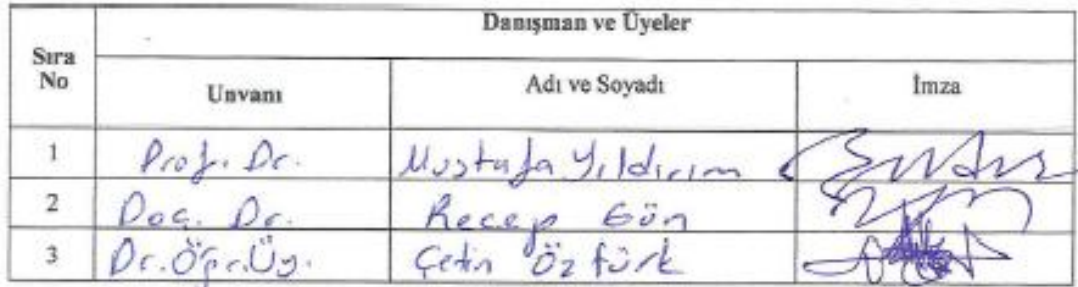 Danışman ve Üyeler
Sıra No Unvanı Adı ve Soyadı İmza
1 Prof. Dr. Mustafa Yıldırım
2 Doç. Dr. Recep Gün
3 Dr.Öğr.Üy. Çetin Öztürk